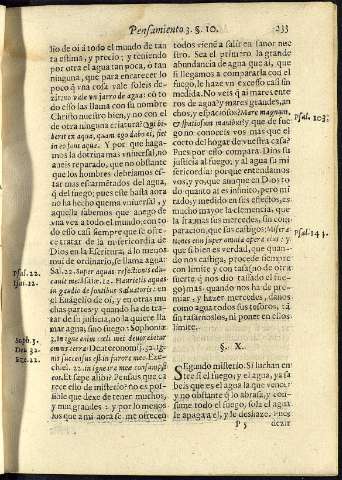 Pensamiento 3. §. 10. 233
lio de oi à todo el mundo de tan
ta estima, y precio; y teniendo
por otra el agua tan poca, ò tan
ninguna, que para encarecer lo
poco q̃ una cosa vale soleis de-
zir: no vale un jarro de agua: cõ to
do esso las llama con su nombre
Christo nuestro bien, y no con el
de otra ninguna criatura? Qui bi-
berit ex aqua, quam ego dabo ei, fiet
in eo fons aquæ. Y por que haga-
mos la doctrina mas universal, no
aveis reparado, que no obstante
que los hombres debriamos es-
tar mas
del agua,
q̃ del fuego; pues este hasta aora
no ha hecho quema universal, y
aquella sabemos que anegò de
una vez a todo el mundo; con to
do esso casi siempre que se ofre-
ce tratar de la misericordia de
Dios en la Escritura, à lo menos
mui de ordinario, se llama agua:
Sal. 22. Super aquas refectionis edu-
cavit me. Isaiæ. 12. Haurietis aquas
in gaudio de fontibus Salvatoris: en
el Euãgelio de oi, y en otras mu
chas partes: y quando ha de tra-
tar de su justicia, no la quiere lla
mar agua, sino fuego: Sophoniæ
3. In igne enim zeli mei devorabitur
omnis terra: Deuteronom. 32. Ig-
nis succensus est in furore meo. Eze-
chiel. 22. in igne iræ meæ consumpsi
eos. Et sæpe alibi: Pensais que ca
rece esto de misterio? no es possi-
ble que dexe de tener muchos,
y mui grandes: y por lo menos
los que a mi aora se me ofrecen
todos vienẽ a salir en favor nue
stro. Sea el primero la grande
abundancia de agua que ai, que
si llegamos a compararla con el
fuego, le haze vn excesso casi sin
medida. No veis q̃ ai mares ente
ros de agua? y mares grandes, an
chos, y espaciosos? Mare magnum,
& spatiosum manibus? y que de fue
go no conoceis vos mas que el
corto del hogar de vuestra casa?
Pues por esso comparà Dios su
justicia al fuego, y al agua su mi
sericordia: porque entendamos
vos, y yo, que aunque en Dios to
do quanto ai es infinito, pero mi
rado, y medido en sus efectos, es
mucho mayor la clemencia, que
la ira: mas sus mercedes, sin com
paracion, que sus castigos: Misera
tiones eius super omnia opera eius: y
que si bien es verdad, que quan-
do nos castiga, procede siempre
con limite y con tassa (no de otra
suerte, q̃ nos dio tassado el fue-
go) mas quando nos ha de pre-
miar, y hazer mercedes, danos
como agua todos sus tesoros, tã
sin tassarnoslos, ni poner en ello
limite.
§. X.
Segundo misterio. Si luchan en
tre si el fuego, y el agua, ya sa
beis que es el agua la que vence,
y no obstante q̃ lo abrasa, y con-
sume todo el fuego, sola el agua
le apaga a el, y le deshaze. Pues
P 5 dezir
Psal. 22.
Isai. 12.
Soph. 3.
Deu. 32.
Eze. 22.
Psal. 103.
Psal. 144.